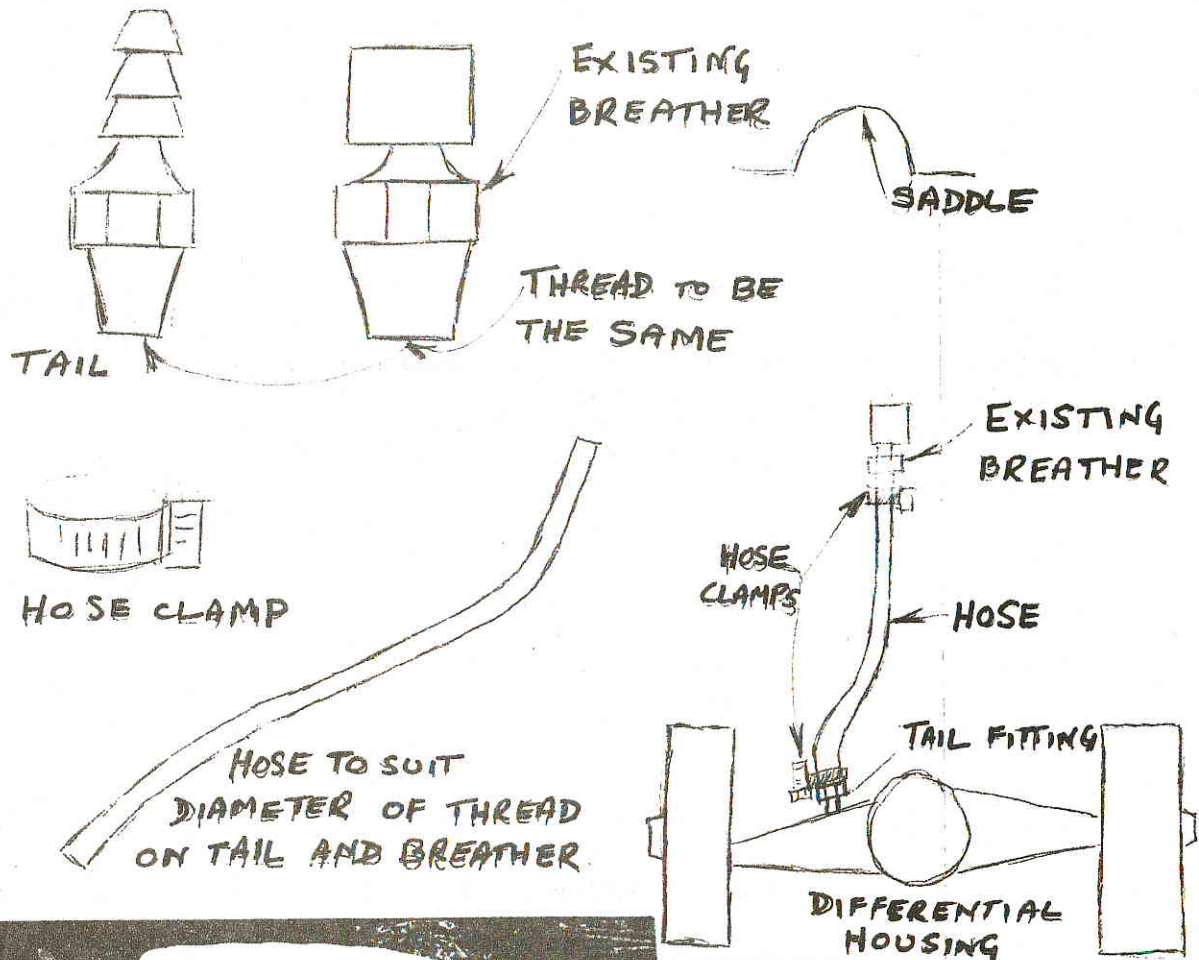 EXISTING
BREATHER
SADDLE
THREAD TO BE
THE SAME
TAIL
EXISTING
BREATHER
HOSE CLAMP
HOSE
CLAMPS
HOSE
TAIL FITTING
HOSE TO SUIT
DIAMETER OF THREAD
ON TAIL AND BREATHER
DIFFERENTIAL
HOUSING